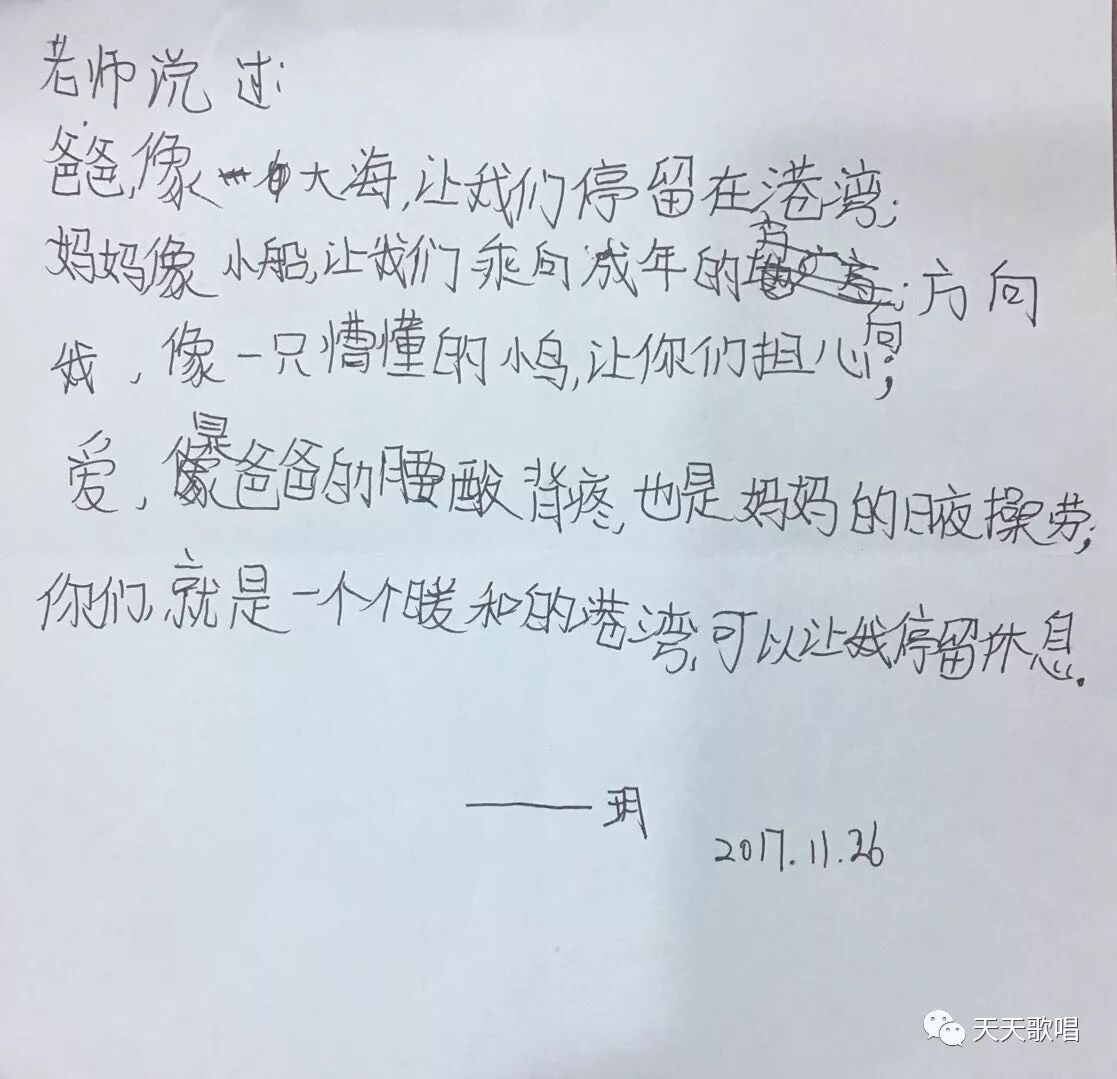 老师说过:
爸爸,像大海,让我们停留在港湾;
妈妈像小船,让我们乘向成年的方向
我,像一只懵懂的小鸟,让你们担心;
爱,是爸爸的腰酸背疼,也是妈妈的日夜操劳;
你们,就是一个个暖和的港湾,可以让我停留休息.
——玥
2017.11.26
天天歌唱